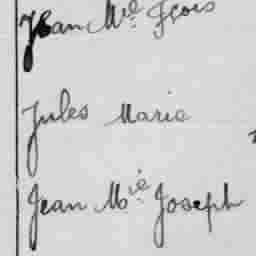 Jean Mie Fçois
Jules Marie
Jean Mie Joseph